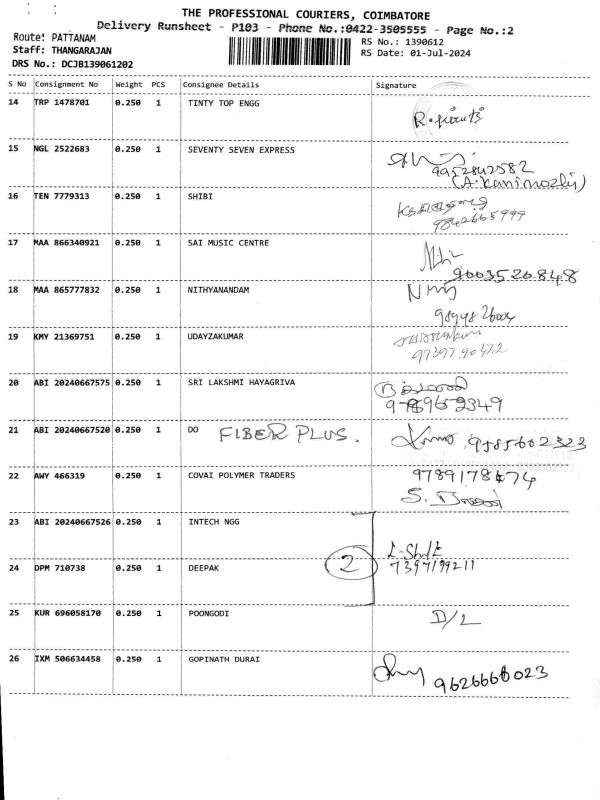 THE PROFESSIONAL COURIERS, COIMBATORE
Delivery Runsheet - P103 - Phone No.:0422-3505555 - Page No.:2
Route: PATTANAM
RS No.: 1390612
Staff: THANGARAJAN
RS Date: 01-Jul-2024
DRS No.: DCJB139061202
S No Consignment No Weight PCS Consignee Details Signature
14 TRP 1478701 0.250 1 TINTY TOP ENGG
15 NGL 2522683 0.250 1 SEVENTY SEVEN EXPRESS
9952842582
(A.Kanimozhi)
16 TEN 7779313 0.250 1 SHIBI
9842665999
17 MAA 866340921 0.250 1 SAI MUSIC CENTRE
9003526848
18 MAA 865777832 0.250 1 NITHYANANDAM
19 KMY 21369751 0.250 1 UDAYZAKUMAR
97397 90472
20 ABI 20240667575 0.250 1 SRI LAKSHMI HAYAGRIVA
9789652349
21 ABI 20240667520 0.250 1 DO FIBER PLUS. 9585602323
22 AWY 466319 0.250 1 COVAI POLYMER TRADERS 9789178474
23 ABI 20240667526 0.250 1 INTECH NGG
24 DPM 710738 0.250 1 DEEPAK 2 7397199211
25 KUR 696058170 0.250 1 POONGODI D/L
26 IXM 506634458 0.250 1 GOPINATH DURAI
9626666023